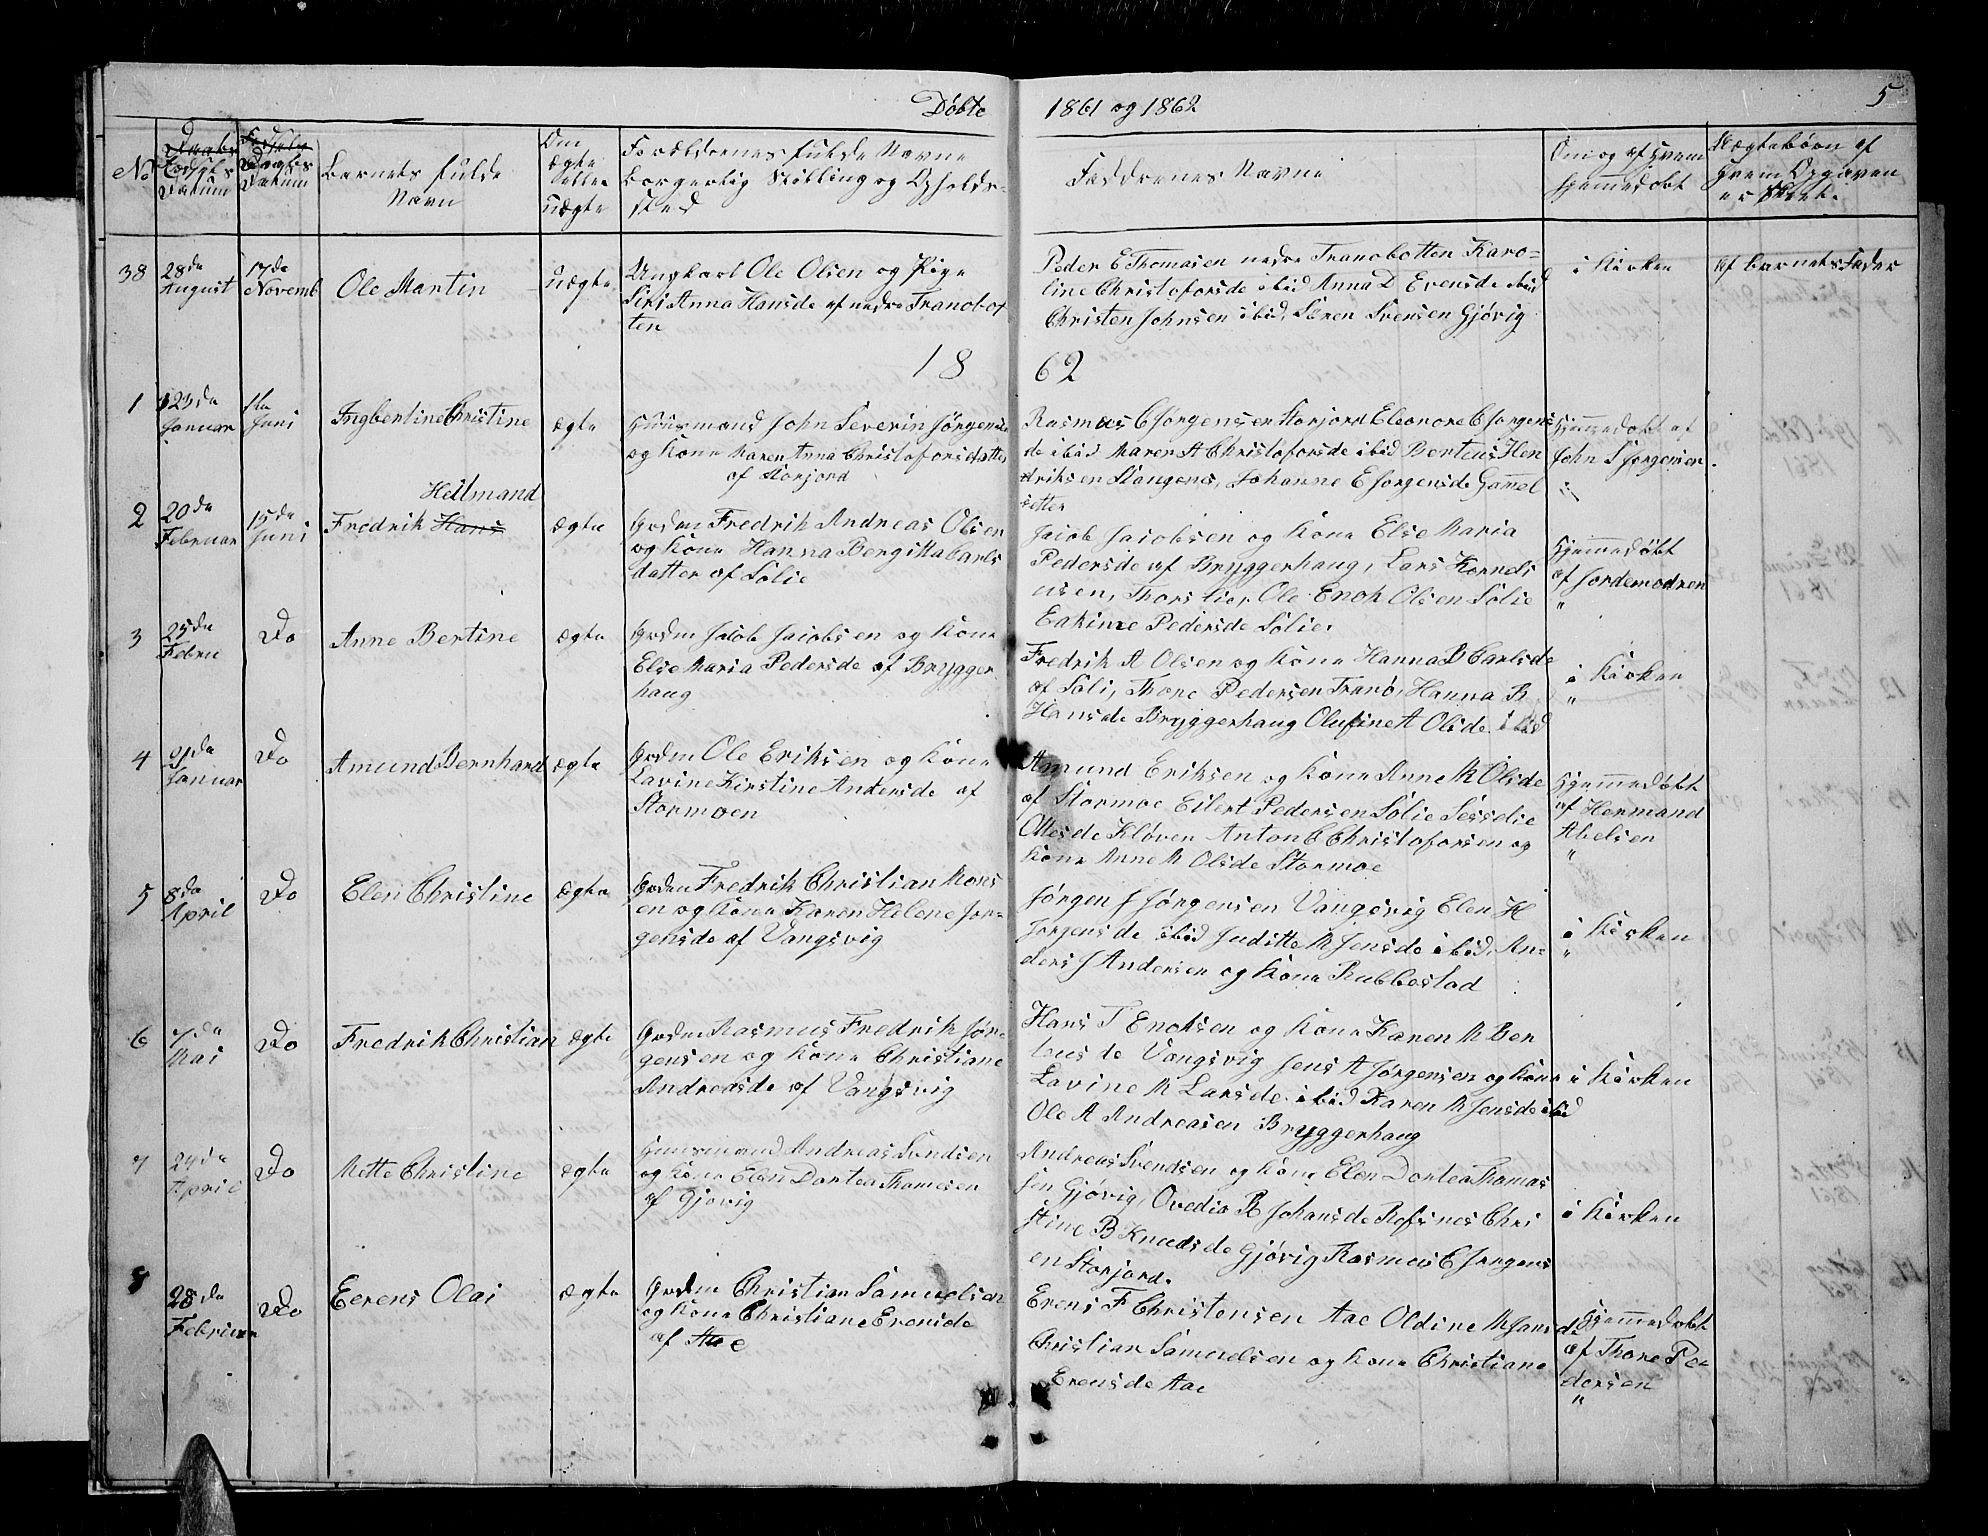 Döbte 1861 og 1862 5
No
Födsels
Datum
Daabs
Datum
Barnets fulde
Navn
Om
ægte
eller
uægte
Forældrenes fulde Navne
borgerlig Stilling og Opholds-
sted
Faddrenes Navne
Om og af hvem
hjemmedöbt
Uægtebörn af
hvem Opgaven
er skeet.
38
28da
August
17da
Novemb
Ole Martin
uægte
Ungkarl Ole Olsen og Pige
Siri Anna Hansde af nedre Tranobot
ten
Peder E Thomasen nedre Tranobotten Karo-
line Christoforsde ibid Anna D Evensde ibid
Christen Johnsen ibid, Sören Svensen Gjövig
i Kirken
af barnets Fader
18 62
1
23da
Januar
1ta
Juni
Ingbertine Christine
ægte
Huusmand John Severin Jörgensen
og Kone Maren Anna Christoforsdatter
af Storjord
Rasmus C Jorgensen Storjord Eleonore C Jorgens
de ibid Maren A Christoforsde ibid Berteus Hen
driksen Stangens, Johanne E Jorgensde Gammel
setter
Hjemmedobt af
John S Jorgensen
"
2
20da
Februar
15da
Juni
Hellmand
Fredrik Hans
ægte
Grdm Fredrik Andreas Olsen
og Kone Hanna Bergitta Carls
datter af Solie
Jacob Jacobsen og Kone Else Maria
Pedersde af Bryggerhaug, Lars Korneli
usen, Thorslie, Ole Enok Olsen Solie
Eakime Pedersde Solie.
Hjemmedöbt
af Jordemodren
"
3
25da
Febru
Do
Anne Bertine
ægte
Grdm Jacob Jacobsen og Kone
Else Maria Pedersde af Brygger
haug
Fredrik A Olsen og Kone Hanna B Carlsde
af Soli, Thore Pedersen Tranö, Hanna B
Hansde Bryggerhaug Olufine A Olsde ibid
i Kirken
"
4
21da
Januar
Do
Amund Bernhard
ægte
Grdm Ole Eriksen og Kone
Lavine Kirstine Andersde af
Stormoen
Amund Eriksen og Kone Anne M Olsde
af Stormoe Eilert Pedersen Solie Sesselie
Olesde Klöven Anton C Christoforsen og
Kone Anne M Olsde Stormoe
Hjemmedöbt
af Hermand
Abelsen
"
5
8da
April
Do
Elen Christine
ægte
Grdm Fredrik Christian Mons
en og Kone Karen Helene Jor-
gensde af Vangsvig
Jörgen J Jörgensen Vangsvig Elen H
Jorgensde ibid Juditte M Jensde ibid. An-
ders J Andersen og Kone Rubbestad
i Kirken
"
6
7da
Mai
Do
Fredrik Christian
ægte
Grdm Rasmus Fredrik Jör-
gensen og Kone Christiane
Andreasde af Vangsvig
Hans T Enoksen og Kone Karen M Ber
teusde Vangsvig Jens A Jörgensen og Kone
Lavine M Larsde ibid Karen M Jensde ibid
Ole A Andreasen Bryggerhaug
i Kirken
7
24da
April
Do
Mette Christine
ægte
Huusmand Andreas Svndsen
og Kone Elen Dortea Thomesen
af Gjovig
Andreas Svendsen og Kone Elen Dortea Thomas
sen Gjövig, Ovedia B Johansde Rofsnes Chri
stine B Knudsde Gjövig Rasmus C Jorgens
en Storjord.
i Kirken
8
28da
Februar
Do
Eerens Olai
ægte
Grdm Christian Samuelsen
og Kone Christiane Erensde
af Aae
Erens F Christensen Aae Oldine M Jansde
Christian Samuelsen og Kone Christiane
Erensde Aae
Hjemmedobt
af Thore Pe-
dersen
"